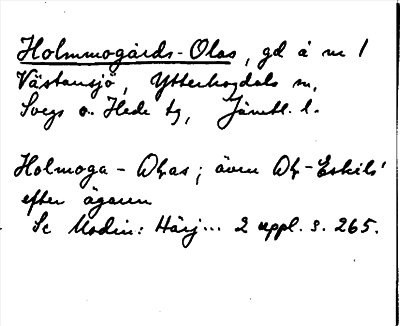 Holmmogårds-Olas, gd å nr 1
Västansjö, Ytterhogdals sn,
Svegs o. Hede tg, Jämtl. l.
Holmoga-Olas; även Ol-Eskils'
efter ägaren
Se Modin: Härj... 2 uppl. s. 265.